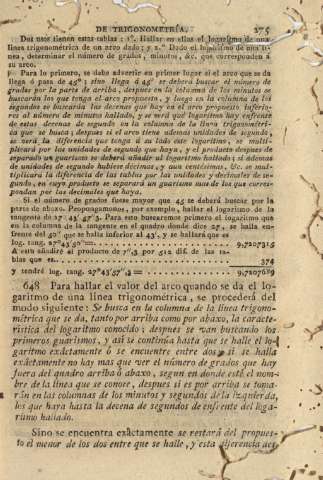 DE TRIGONOMETRÍA. 275
Dos usos tienen estas tablas: 1°. Hallar en ellas el logaritmo de una
línea trigonométrica de un arco dado; y 2.° Dado el logaritmo de una lí-
nea, determinar el número de grados, minutos, &c. que corresponden á
su arco.
Para lo primero, se debe advertir en primer lugar si el arco que se da
llega ó pasa de 45°; sino llega á 45° se deberá buscar el número de
grados por la parte de arriba, despues en la columna de los minutos se
buscarán los que tenga el arco propuesto, y luego en la columna de los
segundos se buscarán las decenas que hay en el arco propuesto inferio-
res al número de minutos hallado, y se verá qué logaritmo hay enfrente
de estas decenas de segundo en la columna de la línea trigonométri-
ca que se busca; despues si el arco tiene ademas unidades de segundo,
se verá la diferencia que tenga á su lado este logaritmo, se multi-
plicará por las unidades de segundo que haya, y el producto despues de
separado un guarismo se deberá añadir al logaritmo hallado; si ademas
de unidades de segundo hubiese décimas y aun centésimas, &c. se mul-
tiplicará la diferencia de las tablas por las unidades y decimales de se-
gundo, en cuyo producto se separará un guarismo mas de los que corres-
pondan por los decimales que haya.
Si el número de grados fuese mayor que 45 se deberá buscar por la
parte de abaxo. Propongamonos, por exemplo, hallar el logaritmo de la
tangente de 27° 43' 57",3. Para esto buscaremos primero el logaritmo que
en la columna de la tangente en el quadro donde dice 27, se halla en-
frente del 50" que se halla inferior al 43', y se hallará que es
log. tang. 27°43'50"= 9,7207315
á esto añadiré al producto de 7",3 por 512 dif. de las ta-
blas que es 374
y tendré log. tang. 27°43'57",3 = 9,7207689
648 Para hallar el valor del arco quando se da el lo-
garitmo de una línea trigonométrica, se procederá del
modo siguiente: Se busca en la columna de la línea trigono-
métrica que se da, tanto por arriba como por abaxo, la caracte-
ristica del logaritmo conocido; despues se van buscando los
primeros guarismos, y así se continúa hasta que se halle el lo-
garitmo exáctamente ó se encuentre entre dos; si se halla
exáctamente no hay mas que ver el número de grados que hay
fuera del quadro arriba ó abaxo, segun en donde esté el nom-
bre de la línea que se conoce, despues si es por arriba se toma-
rán en las columnas de los minutos y segundos de la izquierda,
los que haya hasta la decena de segundos de enfrente del loga-
ritmo hallado.
Sino se encuentra exáctamente se restará del propues-
to el menor de los dos entre que se halle, y esta diferencia au-